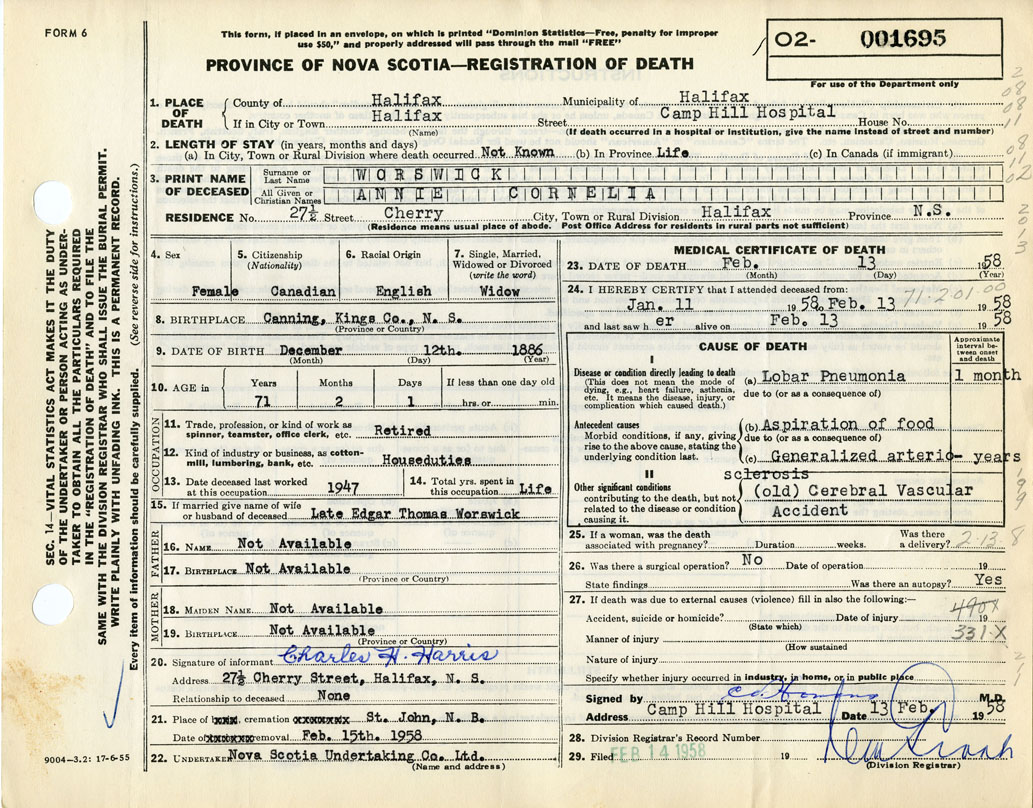 FORM 6
This form, if placed in an envelope, on which is printed "Dominion Statistics—Free, penalty for improper
use $50," and properly addressed will pass through the mail "FREE"
PROVINCE OF NOVA SCOTIA—REGISTRATION OF DEATH
O2- 001695
For use of the Department only
SEC. 14—VITAL STATISTICS ACT MAKES IT THE DUTY
OF THE UNDERTAKER OR PERSON ACTING AS UNDER-
TAKER TO OBTAIN ALL THE PARTICULARS REQUIRED
IN THE "REGISTRATION OF DEATH" AND TO FILE THE
SAME WITH THE DIVISION REGISTRAR WHO SHALL ISSUE THE BURIAL PERMIT.
WRITE PLAINLY WITH UNFADING INK. THIS IS A PERMANENT RECORD.
Every item of information should be carefully supplied. (See reverse side for instructions.)
1. PLACE OF DEATH
County of Halifax Municipality of Halifax
If in City or Town Halifax Street Camp Hill Hospital House No.
(Name) (If death occurred in a hospital or institution, give the name instead of street and number)
2. LENGTH OF STAY (in years, months and days)
(a) In City, Town or Rural Division where death occurred Not Known (b) In Province Life (c) In Canada (if immigrant)
3. PRINT NAME OF DECEASED
Surname or Last Name WORSWICK
All Given or Christian Names ANNIE CORNELIA
RESIDENCE No. 27½ Street Cherry City, Town or Rural Division Halifax Province N.S.
(Residence means usual place of abode. Post Office Address for residents in rural parts not sufficient)
4. Sex 5. Citizenship (Nationality) 6. Racial Origin 7. Single, Married, Widowed or Divorced (write the word)
Female Canadian English Widow
8. BIRTHPLACE Canning, Kings Co., N. S.
(Province or Country)
9. DATE OF BIRTH December 12th. 1886
(Month) (Day) (Year)
10. AGE in Years Months Days If less than one day old
71 2 1 hrs. or min.
OCCUPATION
11. Trade, profession, or kind of work as spinner, teamster, office clerk, etc. Retired
12. Kind of industry or business, as cotton-mill, lumbering, bank, etc. Houseduties
13. Date deceased last worked at this occupation 1947
14. Total yrs. spent in this occupation Life
15. If married give name of wife or husband of deceased Late Edgar Thomas Worswick
FATHER
16. NAME Not Available
17. BIRTHPLACE Not Available
(Province or Country)
MOTHER
18. MAIDEN NAME Not Available
19. BIRTHPLACE Not Available
(Province or Country)
20. Signature of informant Charles H. Harris
Address 27½ Cherry Street, Halifax, N. S.
Relationship to deceased None
21. Place of cremation St. John, N. B.
Date of removal Feb. 15th. 1958
22. UNDERTAKER Nova Scotia Undertaking Co. Ltd.
(Name and address)
9004—3.2: 17-6-55
MEDICAL CERTIFICATE OF DEATH
23. DATE OF DEATH Feb. 13 1958
(Month) (Day) (Year)
24. I HEREBY CERTIFY that I attended deceased from:
Jan. 11 1958 Feb. 13 1958
71-2-01-00
and last saw her alive on Feb. 13 1958
CAUSE OF DEATH
Approximate interval between onset and death
I
Disease or condition directly leading to death
(This does not mean the mode of dying, e.g., heart failure, asthenia, etc. It means the disease, injury, or complication which caused death.)
(a) Lobar Pneumonia 1 month
due to (or as a consequence of)
Antecedent causes
Morbid conditions, if any, giving rise to the above cause, stating the underlying condition last.
(b) Aspiration of food
due to (or as a consequence of)
(c) Generalized arterio- years
sclerosis
II
Other significant conditions contributing to the death, but not related to the disease or condition causing it.
(old) Cerebral Vascular
Accident
25. If a woman, was the death associated with pregnancy? Duration weeks. Was there a delivery?
2-13-8
26. Was there a surgical operation? No Date of operation 19
State findings Was there an autopsy? Yes
27. If death was due to external causes (violence) fill in also the following:—
490X
Accident, suicide or homicide? Date of injury 19
(State which)
331-X
Manner of injury
(How sustained
Nature of injury
Specify whether injury occurred in industry, in home, or in public place
Signed by M.D.
Address Camp Hill Hospital Date 13 Feb. 1958
28. Division Registrar's Record Number
29. Filed FEB 14 1958 19
(Division Registrar)